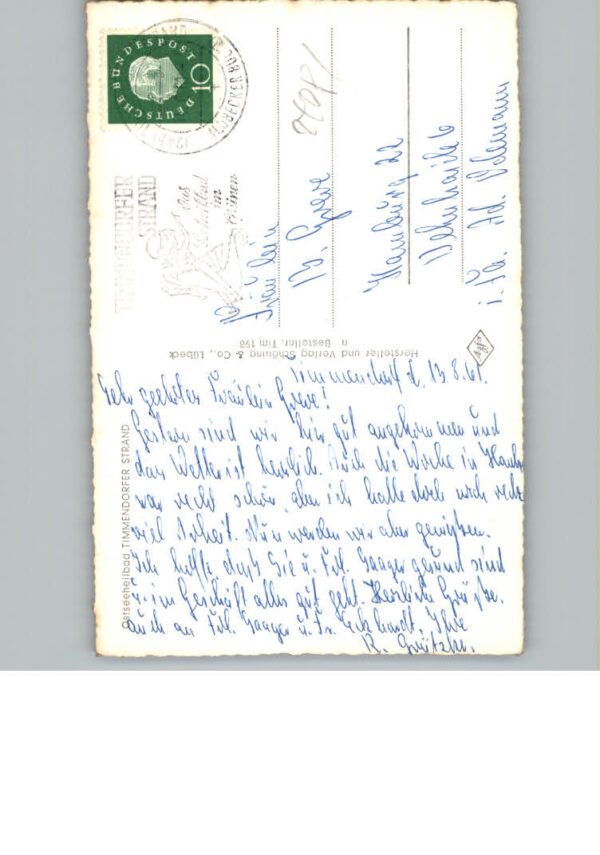 DEUTSCHE BUNDESPOST
10
TIMMENDORFER
STRAND
das
Heilbad
im
Grünen
Fräulein
Greve
Hamburg 22
i. Fa.
Hersteller und Verlag Schöning & Co., Lübeck
Bestellnr. Tim 198
Ostseeheilbad TIMMENDORFER STRAND
Timmendorf d. 13.8.61.
Sehr geehrtes Fräulein Greve!
Gestern sind wir hier gut angekommen und
das Wetter ist herrlich. Auch die Woche in
war recht schön, aber ich hatte doch noch recht
viel Arbeit. Nun werden wir aber genießen.
Ich hoffe daß Sie u. Frl. Saager gesund sind
u. im Geschäft alles gut geht. Herzliche Grüße
auch an Frl. Saager u. Fr. Eckhardt, Ihre
R.